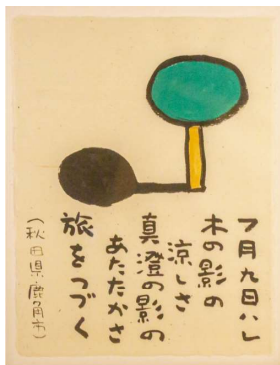 7月九日ハレ
木の影の
涼しさ
真澄の影の
あたたかさ
旅をつづく
（秋田県鹿角市）